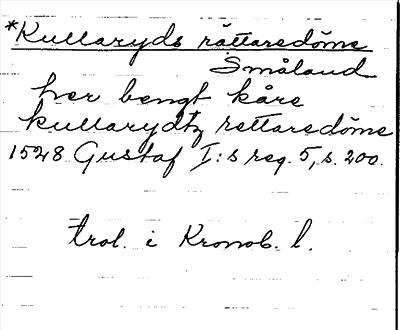 *Kullaryds rättaredöme
Småland
her bengt kåre
kullarydtz rettaredöme
1528 Gustaf I:s reg. 5, s. 200.
trol. i Kronob. l.